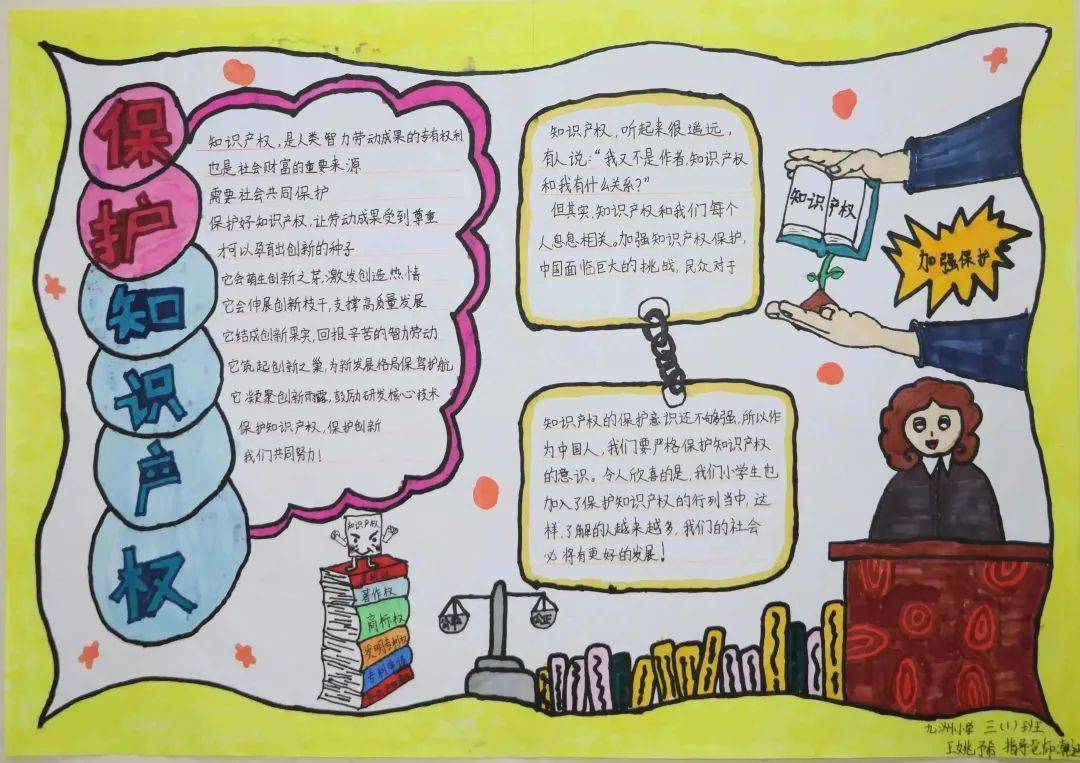 保护知识产权
知识产权，是人类智力劳动成果的专有权利
也是社会财富的重要来源
需要社会共同保护
保护好知识产权，让劳动成果受到尊重
才可以孕育出创新的种子
它会萌生创新之芽，激发创造热情
它会伸展创新枝干，支撑高质量发展
它结成创新果实，回报辛苦的智力劳动
它筑起创新之巢，为新发展格局保驾护航
它凝聚创新雨露，鼓励研发核心技术
保护知识产权，保护创新
我们共同努力！
知识产权，听起来很遥远，
有人说：“我又不是作者，知识产权
和我有什么关系？”
但其实，知识产权和我们每个
人息息相关。加强知识产权保护，
中国面临巨大的挑战，民众对于
知识产权的保护意识还不够强，所以作
为中国人，我们要严格保护知识产权
的意识。令人欣喜的是，我们小学生也
加入了保护知识产权的行列当中，这
样，了解的人越来越多，我们的社会
必将有更好的发展！
知识产权
加强保护
知识产权
著作权
商标权
发明专利权
公正
九洲小学 三（1）班
指导老师